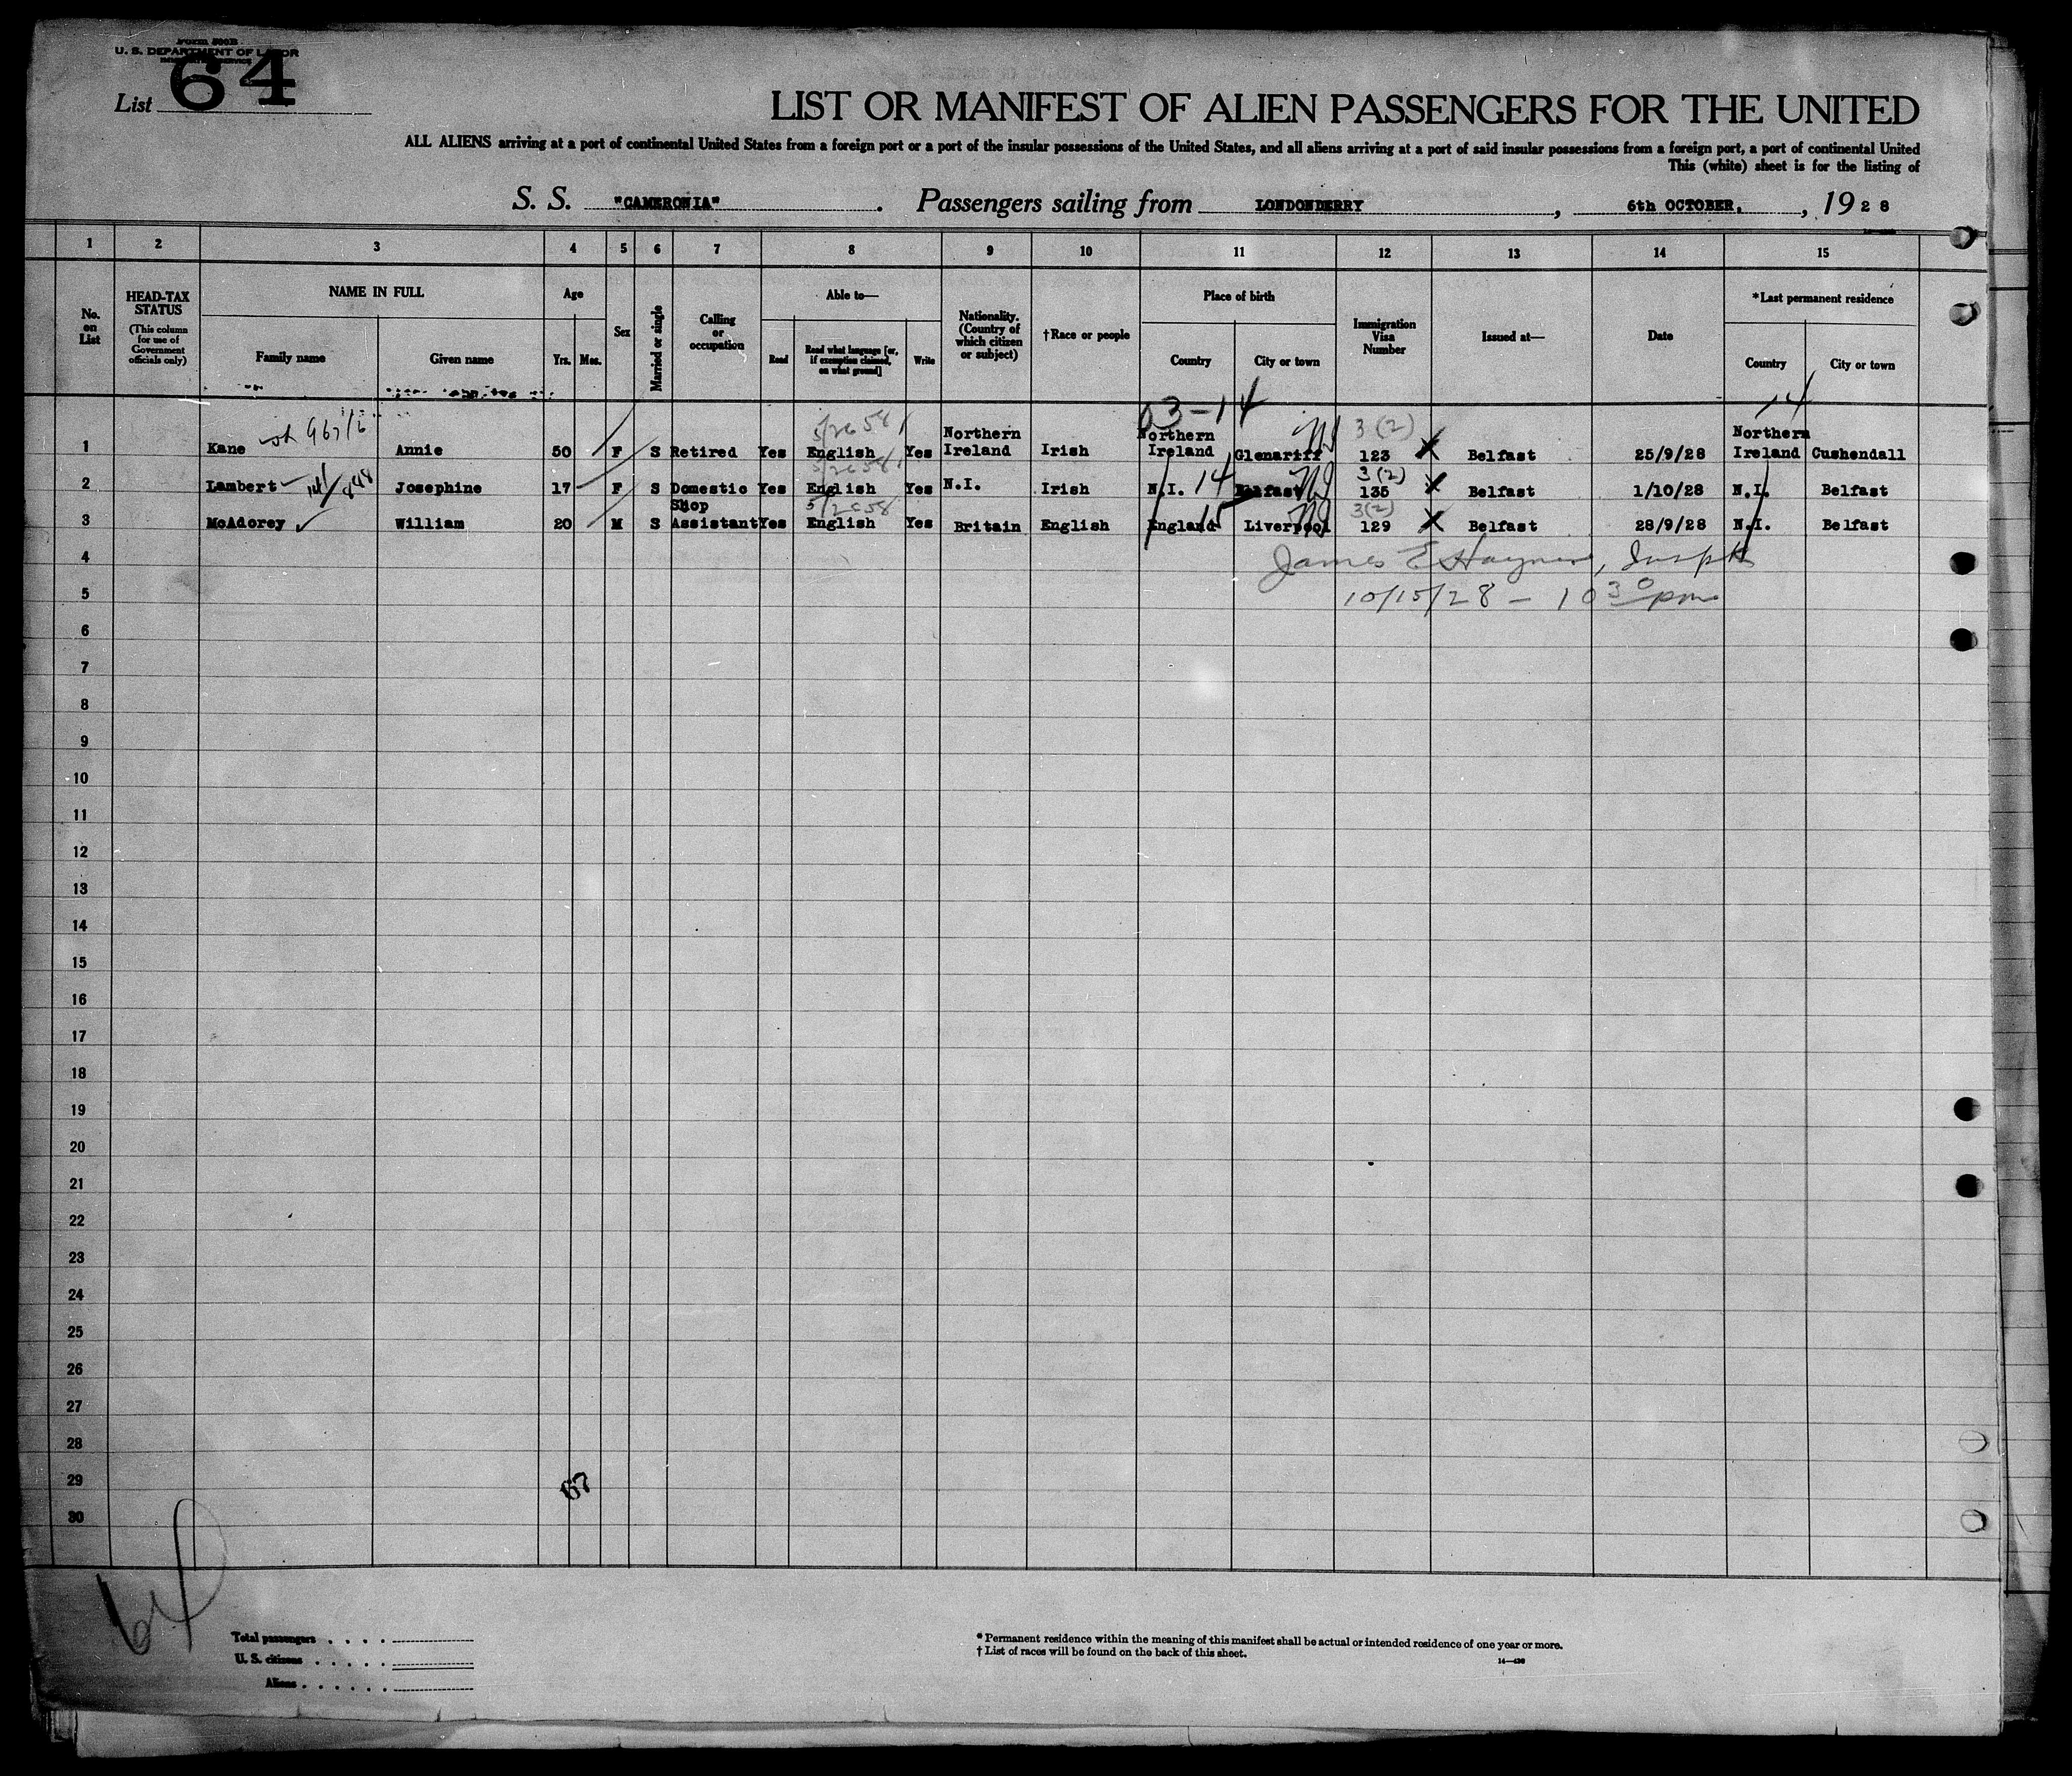 Form 500B
U. S. DEPARTMENT OF LABOR
List 64
LIST OR MANIFEST OF ALIEN PASSENGERS FOR THE UNITED
ALL ALIENS arriving at a port of continental United States from a foreign port or a port of the insular possessions of the United States, and all aliens arriving at a port of said insular possessions from a foreign port, a port of continental United
This (white) sheet is for the listing of
S. S. "CAMERONIA". Passengers sailing from LONDONDERRY, 6th OCTOBER, , 1928
1 2 3 4 5 6 7 8 9 10 11 12 13 14 15
No. on List
HEAD-TAX STATUS
(This column for use of Government officials only)
NAME IN FULL
Family name
Given name
Age
Yrs. Mos.
Sex
Married or single
Calling or occupation
Able to—
Read
Read what language [or, if exemption claimed, on what ground]
Write
Nationality. (Country of which citizen or subject)
†Race or people
Place of birth
Country
City or town
Immigration Visa Number
Issued at—
Date
*Last permanent residence
Country
City or town
03-14 14
5/2658 3(2)
1 Kane Annie 50 F S Retired Yes English Yes Northern Ireland Irish Northern Ireland Glenariff 123 X Belfast 25/9/28 Northern Ireland Cushendall
5/2658 3(2)
2 Lambert Josephine 17 F S Domestic Yes English Yes N.I. Irish N.I. 14 Belfast 135 X Belfast 1/10/28 N.I. Belfast
5/2658 3(2)
3 McAdorey William 20 M S Shop Assistant Yes English Yes Britain English England Liverpool 129 X Belfast 28/9/28 N.I. Belfast
4 James E
5 10/15/28 - 10 30 pm
6
7
8
9
10
11
12
13
14
15
16
17
18
19
20
21
22
23
24
25
26
27
28
29 67
30
64
Total passengers
U. S. citizens
Aliens
* Permanent residence within the meaning of this manifest shall be actual or intended residence of one year or more.
† List of races will be found on the back of this sheet.
14—430